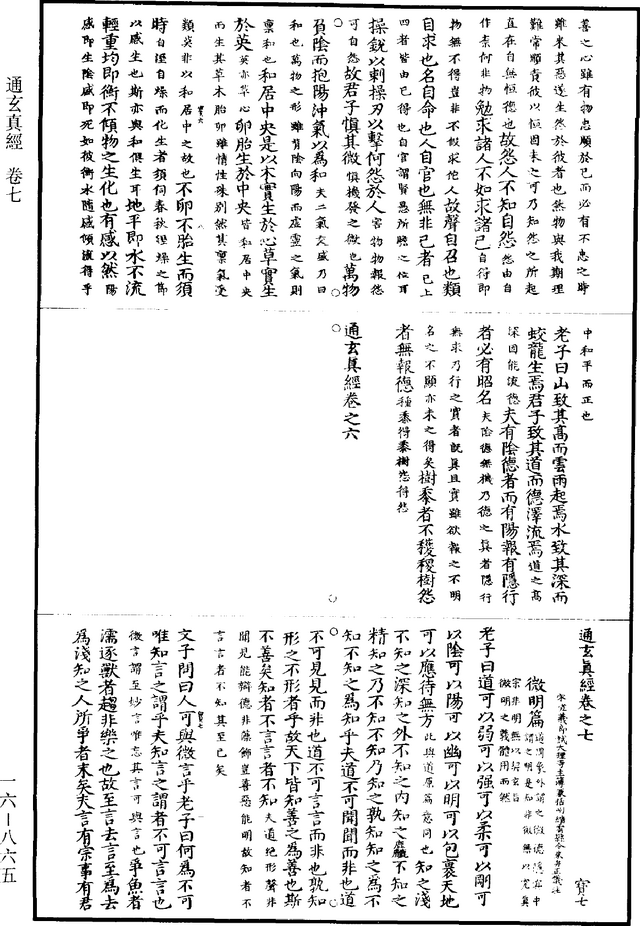 善之心雖有物忠順於己而必有不忠之時
雖來其惡遂生然於彼者也然物與我期理
難常順責彼以恒因未之可乃知怨之所起
直在自無恒德也故怨人不知自怨怨由自
作素何非物勉求諸人不如求諸己自行即
物無不得豈非不似求佗人故聲自召也類
自求也名自命也人自官也無非己者己上
四者皆由己得也自官謂賢愚所賦之位耳
操銳以刺操刃以擊何怨於人害物物報怨
可自怨故君子慎其微慎機發之微也萬物
負陰而抱陽沖氣以為和夫二氣交感乃曰
和也萬物之形雖背陰向陽而虛靈之氣則
稟和也和居中央是以木實生於心草實生
於英英亦草心卵胎生於中央皆和居中央
而生其草木胎卵雖情性殊別然其稟氣受
類莫非以和居中之故也不卵不胎生而須
時自溼自燥而化生者須伺春秋溼燥之節
以感生也斯亦與和俱生耳地平即水不流
輕重均即衡不傾物之生化也有感以然陽
感即生陰感即死如彼衡水隨感傾流得乎
中和平而正也
老子曰山致其高而雲雨起焉水致其深而
蛟龍生焉君子致其道而德澤流焉道之高
深固能流德夫有陰德者而有陽報有隱行
者必有昭名夫陰德無機乃德之真者隱行
無求乃行之實者既真且實雖欲報之不明
名之不顯亦未之得矣樹黍者不穫稷樹怨
者無報德種黍得黍樹怨得怨
通玄真經卷之六
通玄真經卷之七 寶七
微明篇
老子曰道可以弱可以強可以柔可以剛可
以陰可以陽可以幽可以明可以包裹天地
可以應待無方此與道原篇意同也知之淺
不知之深知之外不知之內知之麤不知之
精知之乃不知不知乃知之孰知知之為不
知不知之為知乎夫道不可聞聞而非也道
不可見見而非也道不可言言而非也孰知
形之不形者乎故天下皆知善之為善也斯
不善矣知者不言言者不知夫道絕形聲非
聞見能辯德非藻飾豈善惡能明故知者不
言言者不知其至已矣
文子問曰人可與微言乎老子曰何為不可
唯知言之謂乎夫知言之謂者不可言言也
微言謂至妙言唯忘其言可與言也爭魚者
濡逐獸者趨非樂之也故至言去言至為去
為淺知之人所爭者末矣夫言有宗事有君
通玄真經 卷七
一六－八六五